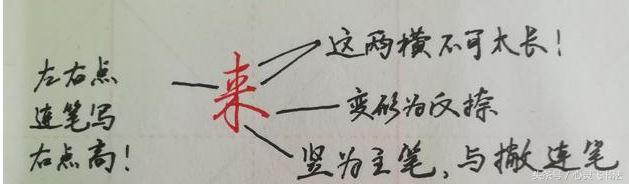 左右点
连笔写
右点高！
来
这两横不可太长！
变形为反捺
竖为主笔，与撇连笔
头条号／心灵飞书法